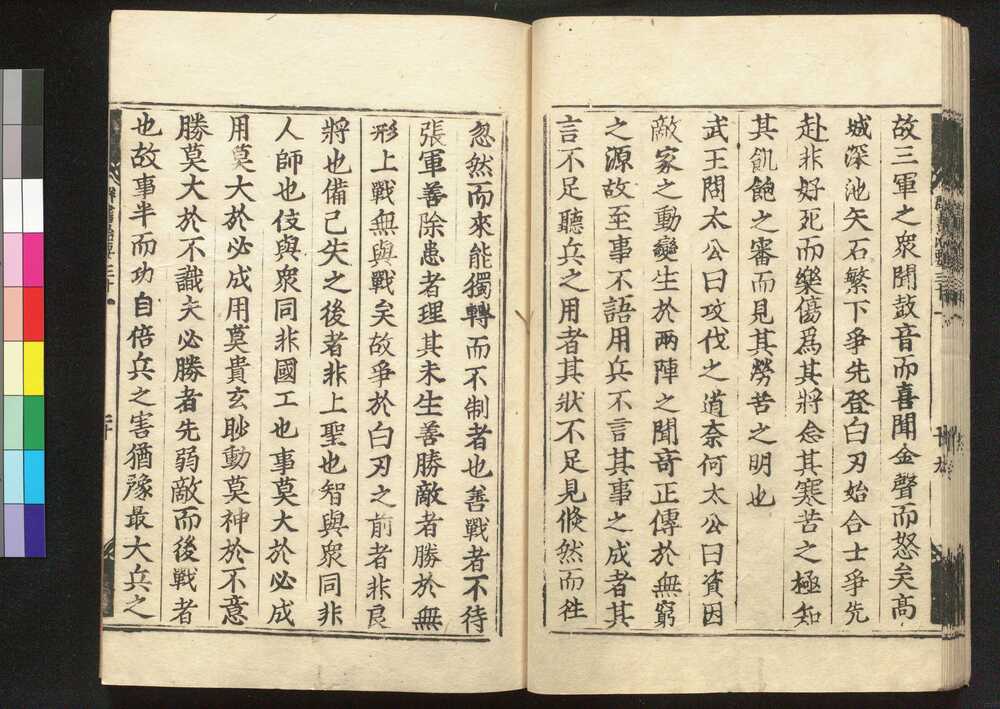 故三軍之衆聞鼓音而喜聞金聲而怒矣髙
城深池矢石繁下爭先登白刃始合士爭先
赴非好死而樂傷爲其將念其寒苦之極知
其飢飽之審而見其勞苦之明也
武王問太公曰攻伐之道奈何太公曰資因
敵家之動變生於兩陣之閒竒正傳於無窮
之源故至事不語用兵不言其事之成者其
言不足聽兵之用者其狀不足見倐然而往
忽然而來能獨轉而不制者也善戰者不待
張軍善除患者理其未生善勝敵者勝於無
形上戰無與戰矣故爭於白刃之前者非良
將也備已失之後者非上聖也智與衆同非
人師也伎與衆同非國工也事莫大於必成
用莫大於必成用莫貴玄眇動莫神於不意
勝莫大於不識夫必勝者先弱敵而後戰者
也故事半而功自倍兵之害猶豫最大兵之